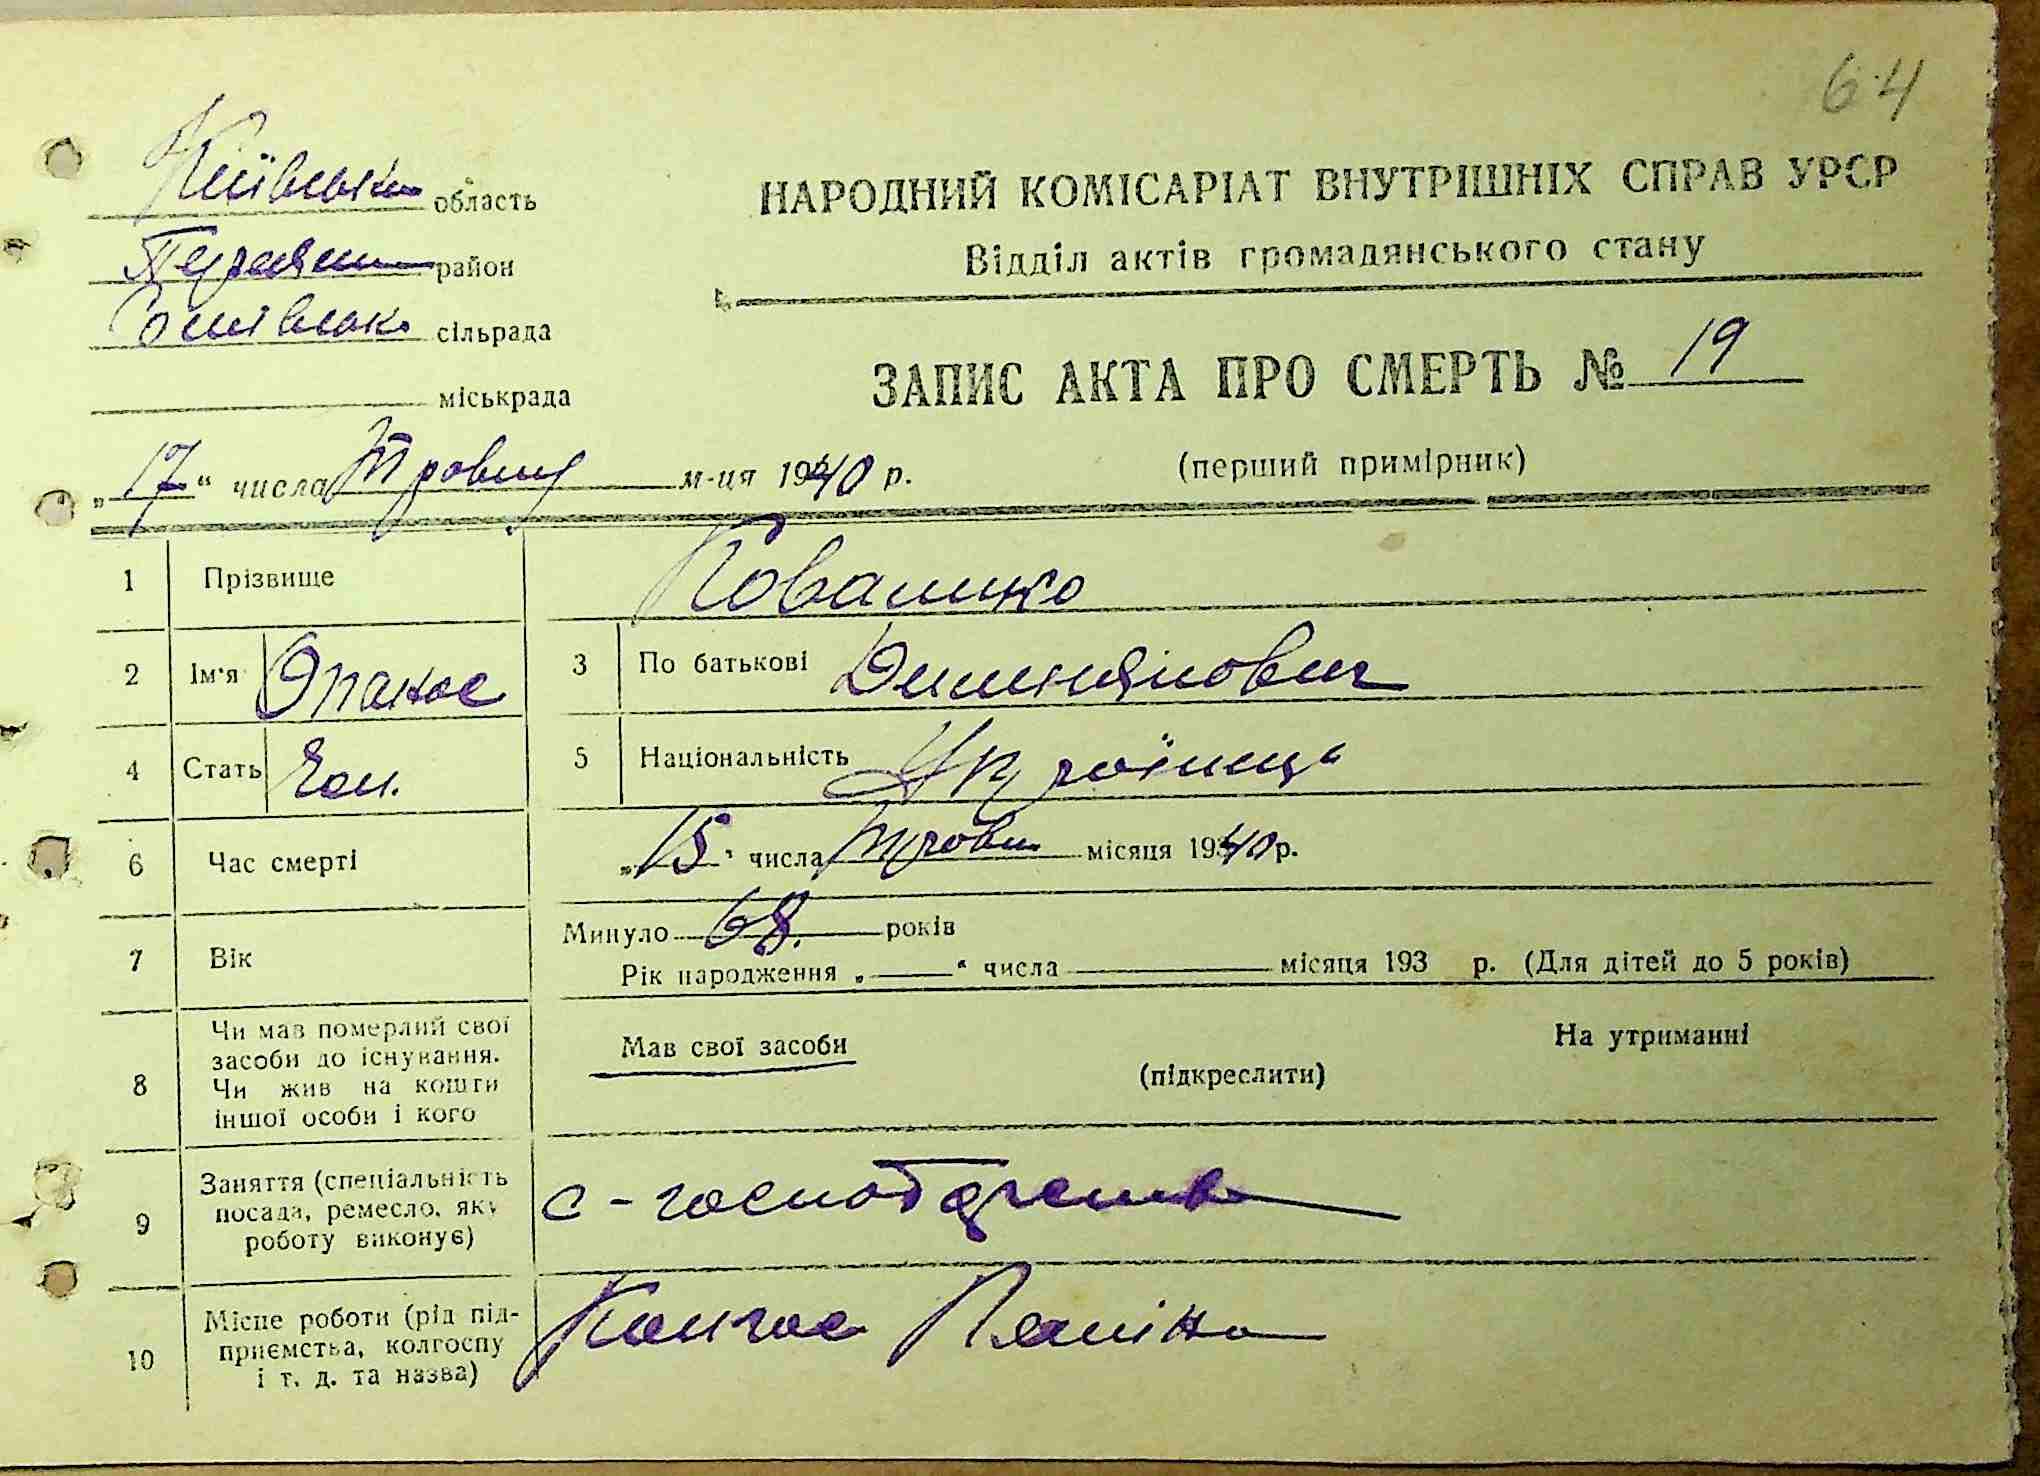 64
Київська область
район
сільрада
міськрада
НАРОДНИЙ КОМІСАРІАТ ВНУТРІШНІХ СПРАВ УРСР
Відділ актів громадянського стану
ЗАПИС АКТА ПРО СМЕРТЬ № 19
(перший примірник)
„17“ числа Травня м-ця 1940 р.
1 Прізвище Коваленко
2 Ім'я Опанас 3 По батькові
4 Стать Чол. 5 Національність Українець
6 Час смерті „15“ числа Травн місяця 1940 р.
7 Вік Минуло 68. років
Рік народження „ “ числа місяця 193 р. (Для дітей до 5 років)
8 Чи мав померлий свої
засоби до існування.
Чи жив на кошти
іншої особи і кого
Мав свої засоби
(підкреслити)
На утриманні
9 Заняття (спеціальність
посада, ремесло, яку
роботу виконує)
с-господарство
10 Місце роботи (рід під-
приємства, колгоспу
і т. д. та назва)
Колгосп Леніна